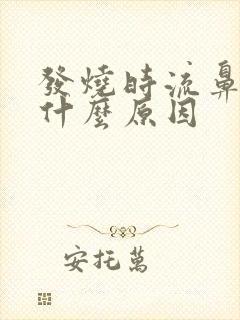 發燒時流鼻
什麼原因
安托萬